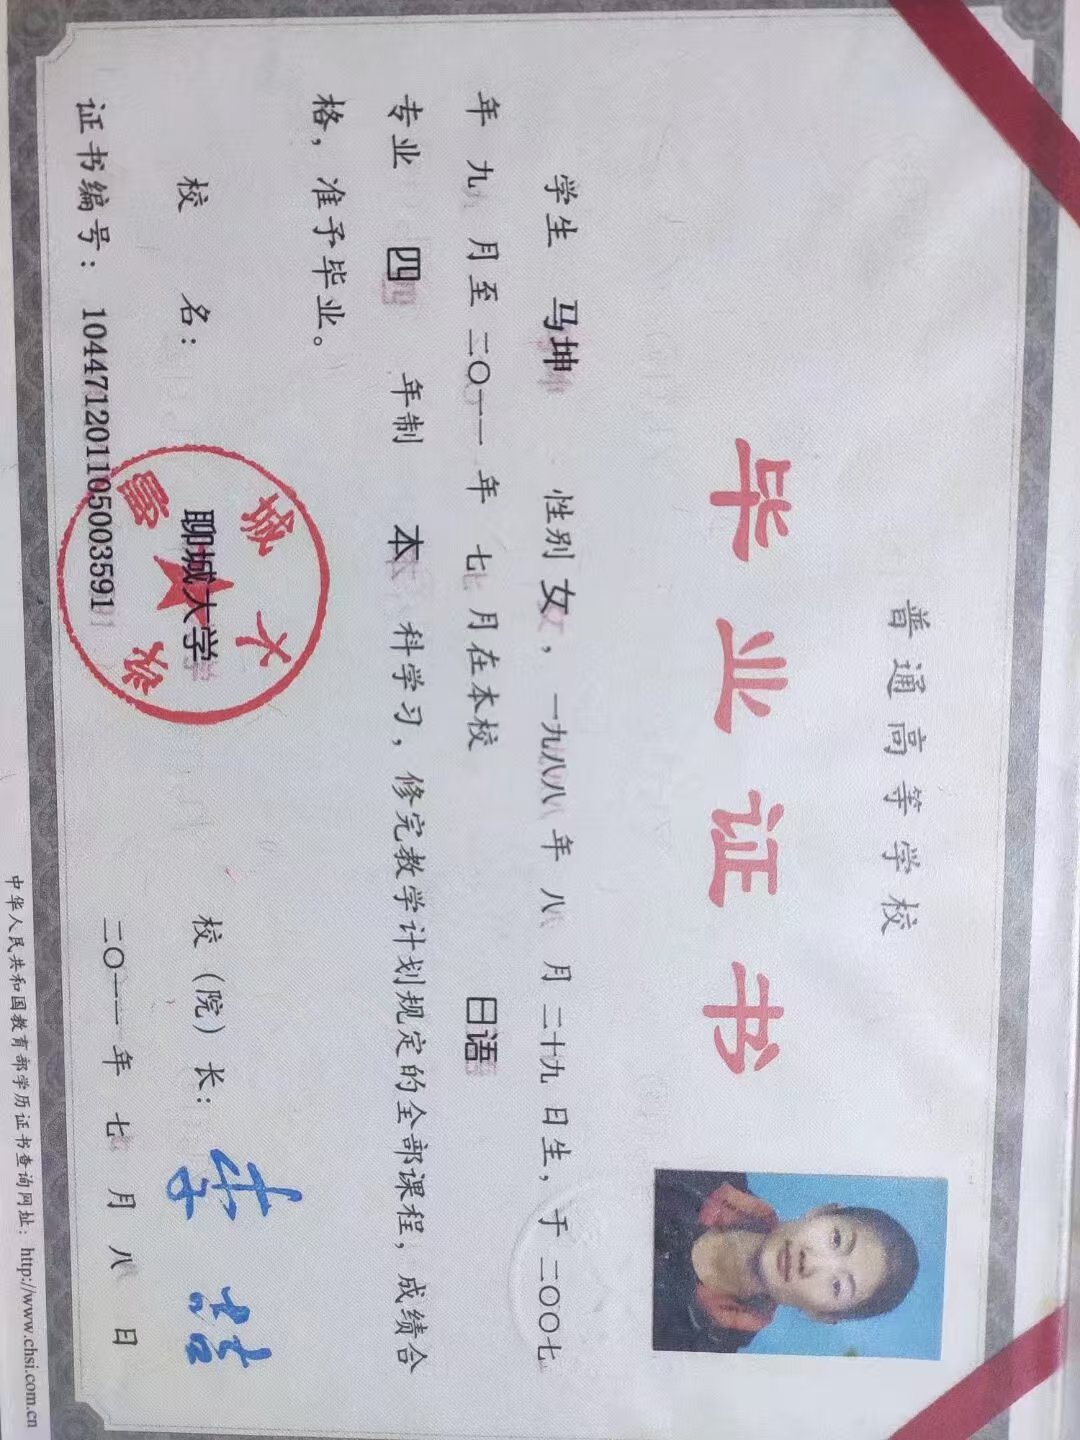 普通高等学校
毕业证书
学生 马坤 性别 女，一九八八 年 八 月 二十九 日生，于 二〇〇七
年 九 月至 二〇一一 年 七 月在本校 日语
专业 四 年制 本 科学习，修完教学计划规定的全部课程，成绩合
格，准予毕业。
校 名： 聊城大学 校（院）长：
证书编号： 104471201105003591 二〇一一 年 七 月 八 日
中华人民共和国教育部学历证书查询网址：http://www.chsi.com.cn